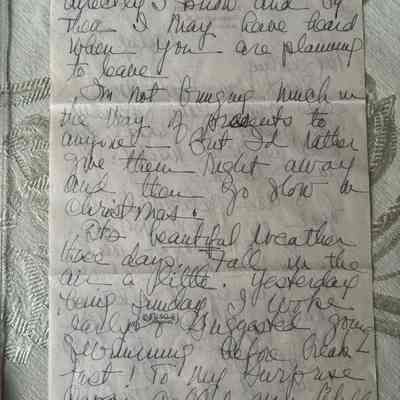 directly I know and by
then I may have heard
when you are planning
to leave.
I'm not bringing much in
the way of presents to
anyone. But I'd rather
give them right away
and then go slow on
Christmas.
It's beautiful weather
these days. Fall in the
air a little. Yesterday
being Sunday I woke
early & suggested going
swimming before break-
fast! To my surprise